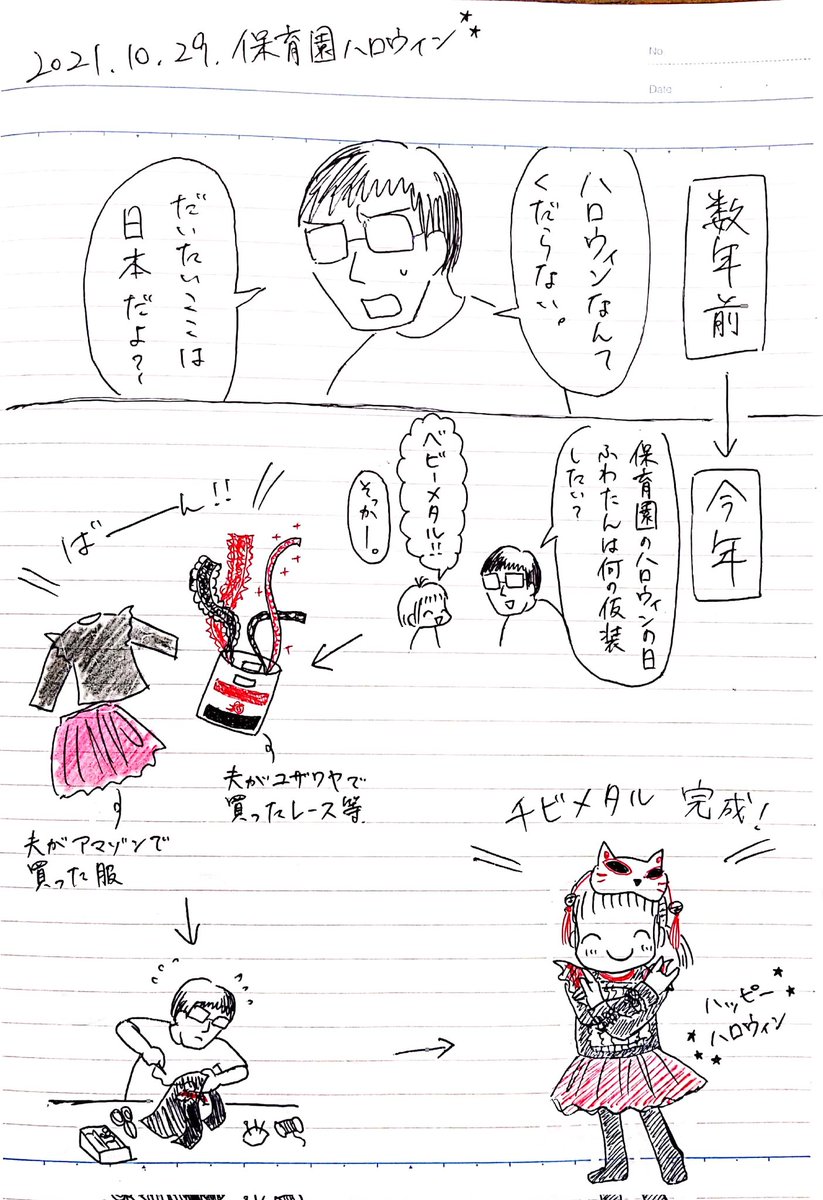 2021.10.29.保育園ハロウィン
No.
Date
数年前
ハロウィンなんて
くだらない。
だいたいここは
日本だよ?
今年
保育園のハロウィンの日
ふわたんは何の仮装
したい?
ベビーメタル!!
そっかー。
ばーーん!!
夫がユザワヤで
買ったレース等
夫がアマゾンで
買った服
チビメタル 完成!
ハッピー
ハロウィン